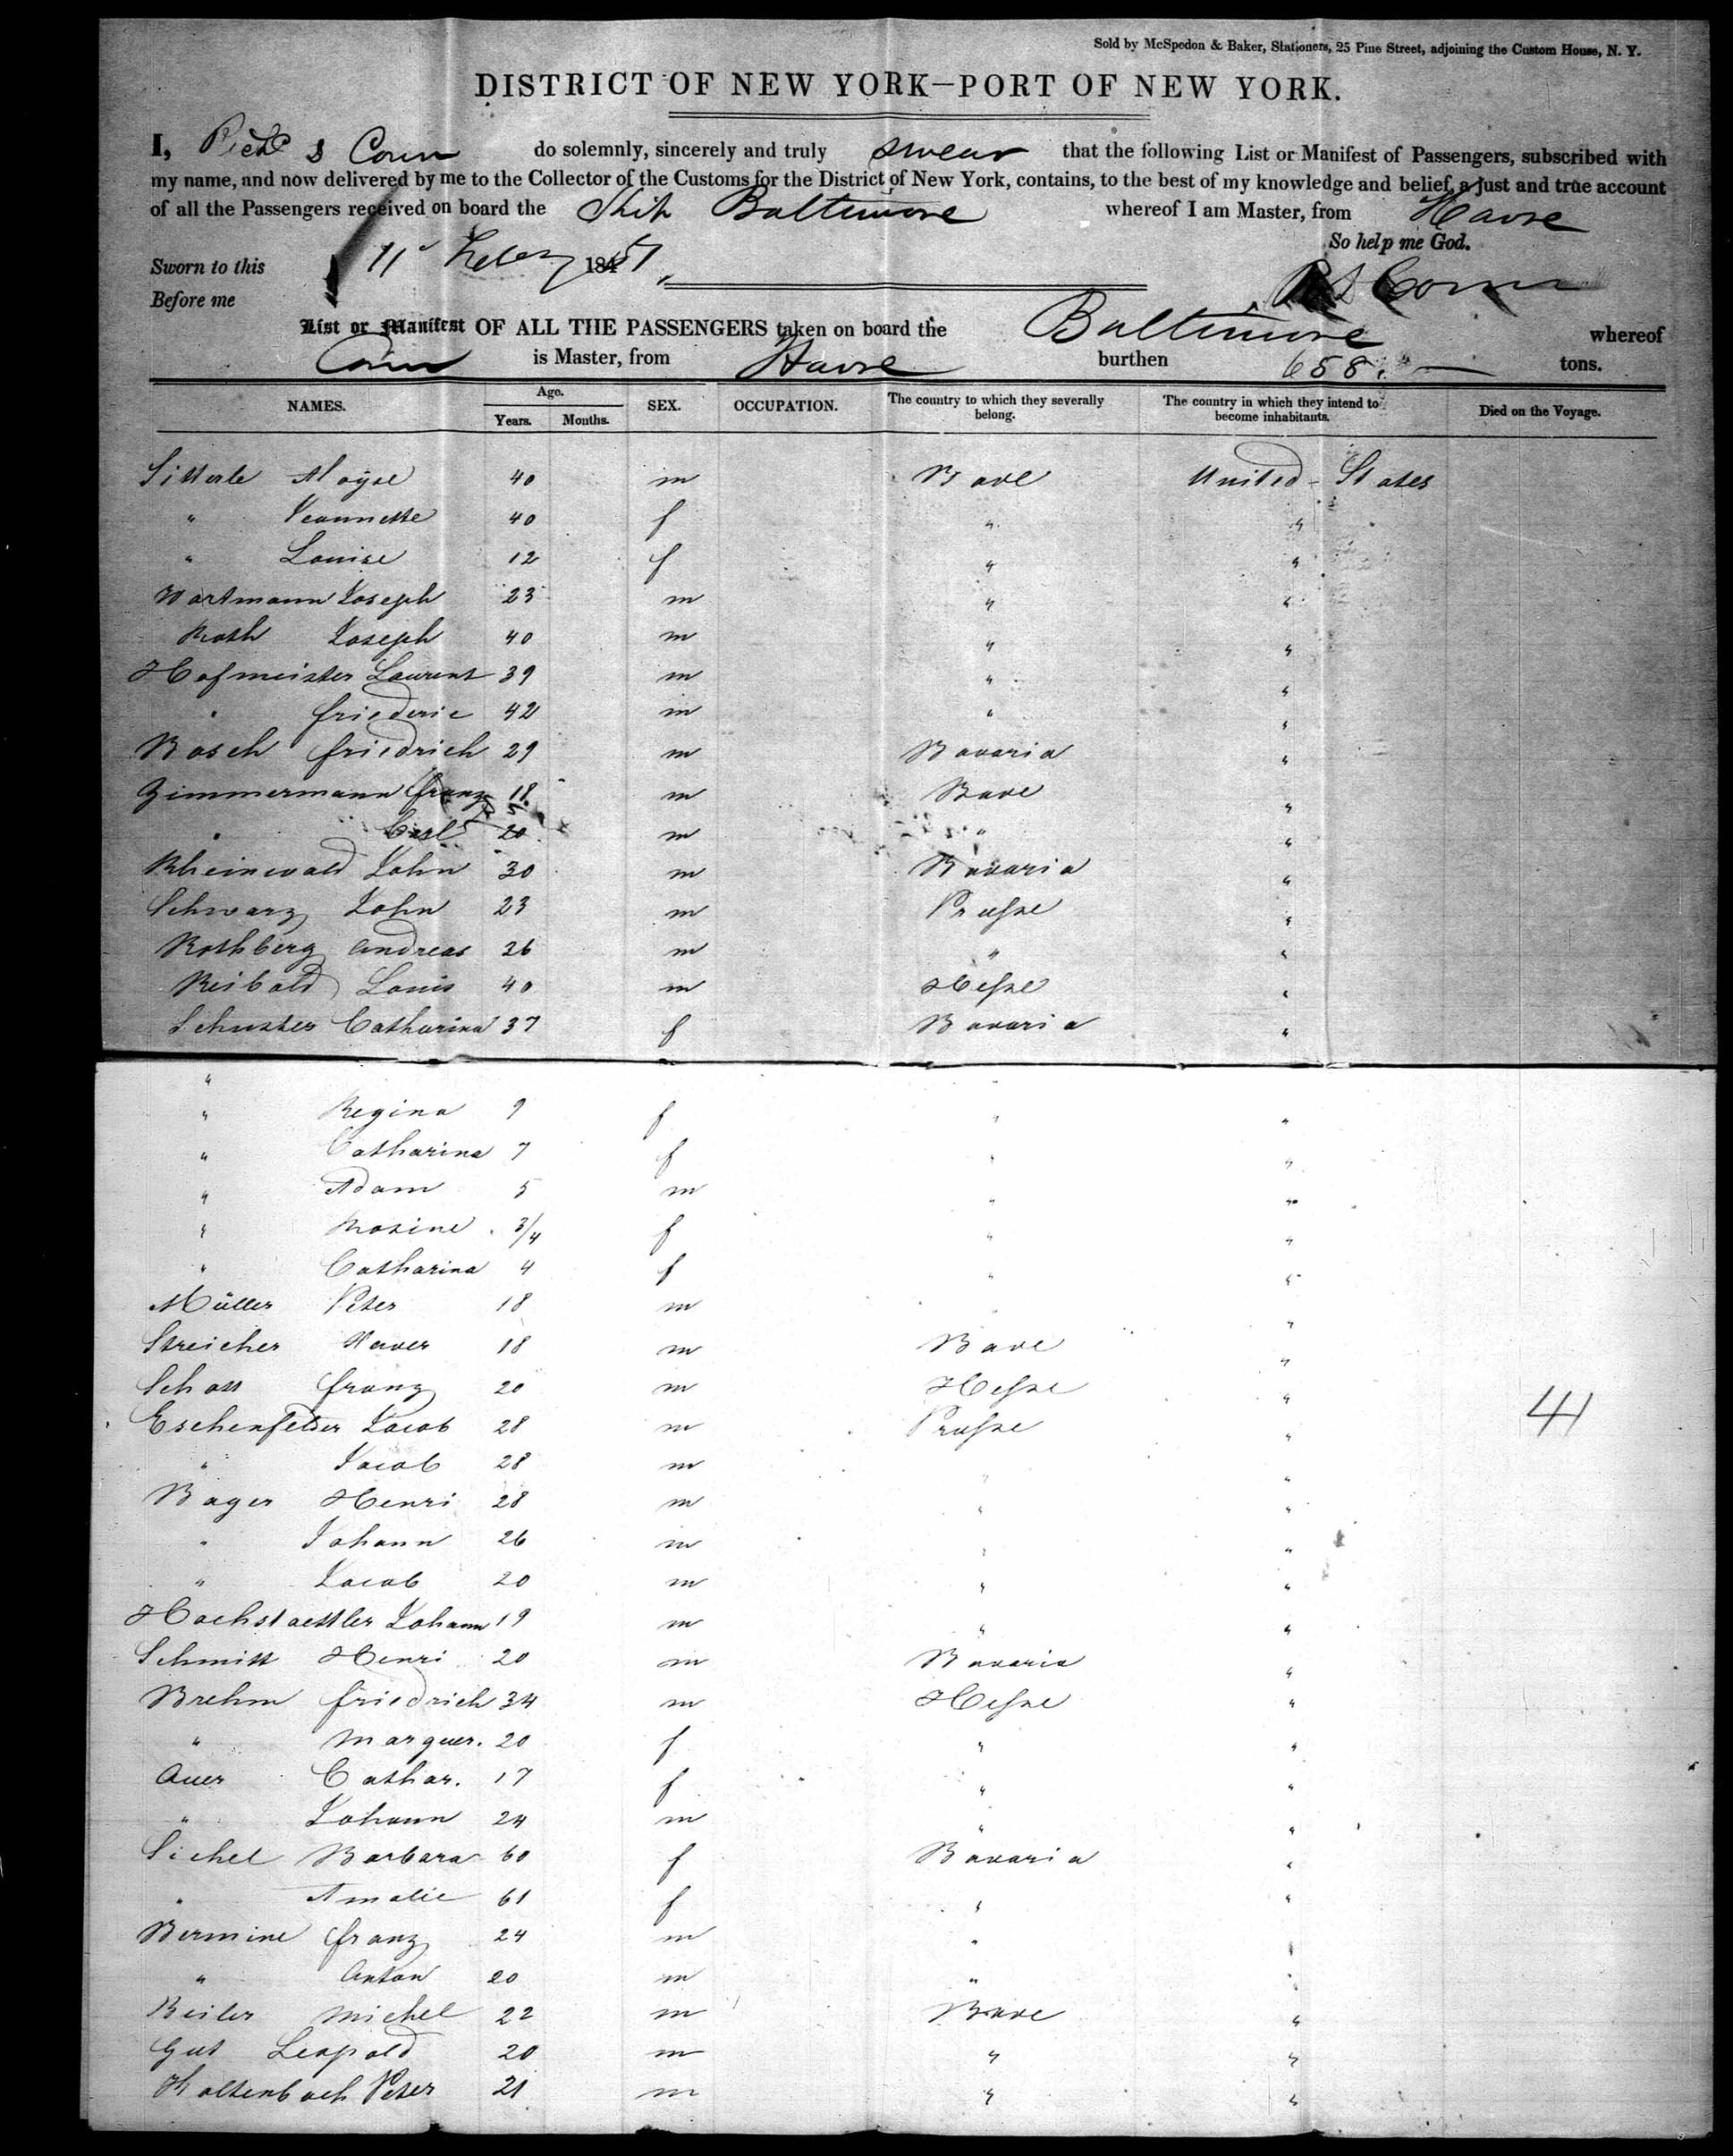 Sold by McSpedon & Baker, Stationers, 25 Pine Street, adjoining the Custom House, N. Y.
DISTRICT OF NEW YORK—PORT OF NEW YORK.
I, Richd S Conn do solemnly, sincerely and truly swear that the following List or Manifest of Passengers, subscribed with
my name, and now delivered by me to the Collector of the Customs for the District of New York, contains, to the best of my knowledge and belief, a just and true account
of all the Passengers received on board the Ship Baltimore whereof I am Master, from Havre
So help me God.
Sworn to this 11 Feby 1851
Before me
List or Manifest OF ALL THE PASSENGERS taken on board the Baltimore whereof
Conn is Master, from Havre burthen 658 tons.
NAMES. Age. Years. Months. SEX. OCCUPATION. The country to which they severally belong. The country in which they intend to become inhabitants. Died on the Voyage.
Sitterle Moyse 40 m Bade United States
" Jeannette 40 f " "
" Louise 12 f " "
Wortmann Joseph 23 m " "
Roth Joseph 40 m " "
Hofmeister Laurent 39 m " "
" friederic 42 m " "
Bosch friedrich 29 m Bavaria "
Zimmermann franz 18 m Bade "
" Carl 20 m " "
Rheinwald John 30 m Bavaria "
Schwarz John 23 m Prusse "
Rothberg Andreas 26 m " "
Reibold Louis 40 m Hesse "
Schuster Catharina 37 f Bavaria "
" "
" Regina 9 f " "
" Catharina 7 f " "
" Adam 5 m " "
" Rosine 3/4 f " "
" Catharina 4 f " "
Müller Peter 18 m " "
Streicher Xaver 18 m Bade "
Schott franz 20 m Hesse "
Eschenfelder Jacob 28 m Prusse " 41
" Jacob 28 m " "
Bager Henri 28 m " "
" Johann 26 m " "
" Jacob 20 m " "
Hochstaettler Johann 19 m " "
Schmitt Henri 20 m Bavaria "
Brehm friedrich 34 m Hesse "
" Marguer. 20 f " "
Auer Cathar. 17 f " "
" Johann 24 m " "
Sichel Barbara 60 f Bavaria "
" Amalie 61 f " "
Bermine franz 24 m " "
" Anton 20 m " "
Beiler Michel 22 m Bade "
Gut Leopold 20 m " "
Kaltenbach Peter 21 m " "